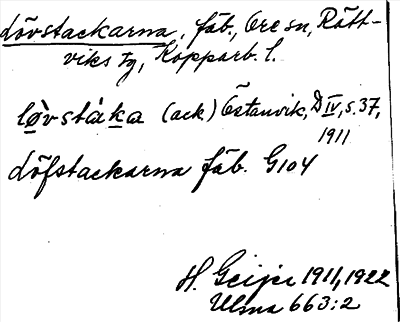 Lövstackarna, fäb., Ore sn, Rätt-
viks tg, Kopparb. l.
lø̀vstáka (ack.) Östanvik, D IV, s. 37,
1911
Löfstackarna fäb. G104
H. Geijer 1911, 1922
Ulma 663:2